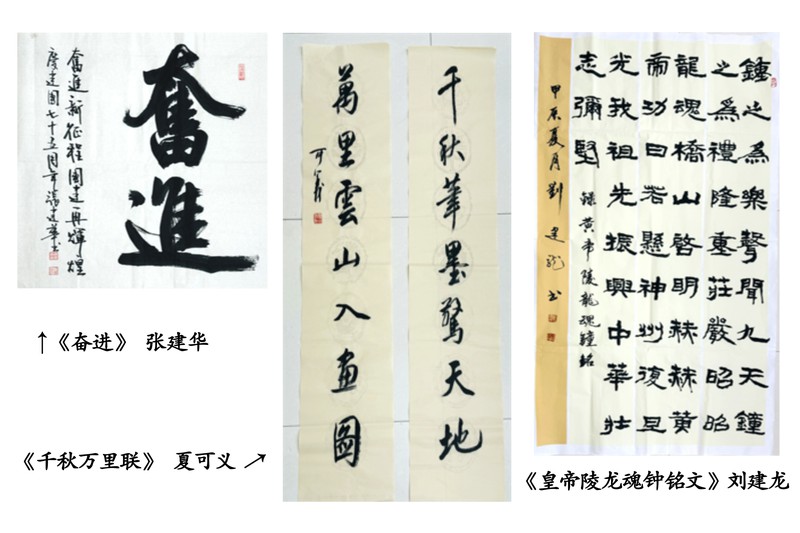 奮進
奮進新征程國運再輝煌
慶建國七十五周年張建華書
↑《奋进》 张建华
千秋筆墨驚天地
萬里雲山入畫圖
可義
《千秋万里联》 夏可义 ↗
鐘之為樂聲聞九天鐘
之為禮隆重莊嚴昭昭
龍魂橋山啓明赫赫黃
帝功日若懸神州復旦
光我祖先振興中華壯
志彌堅
錄黃帝陵龍魂鐘銘
甲辰夏月劉建龍書
《皇帝陵龙魂钟铭文》刘建龙